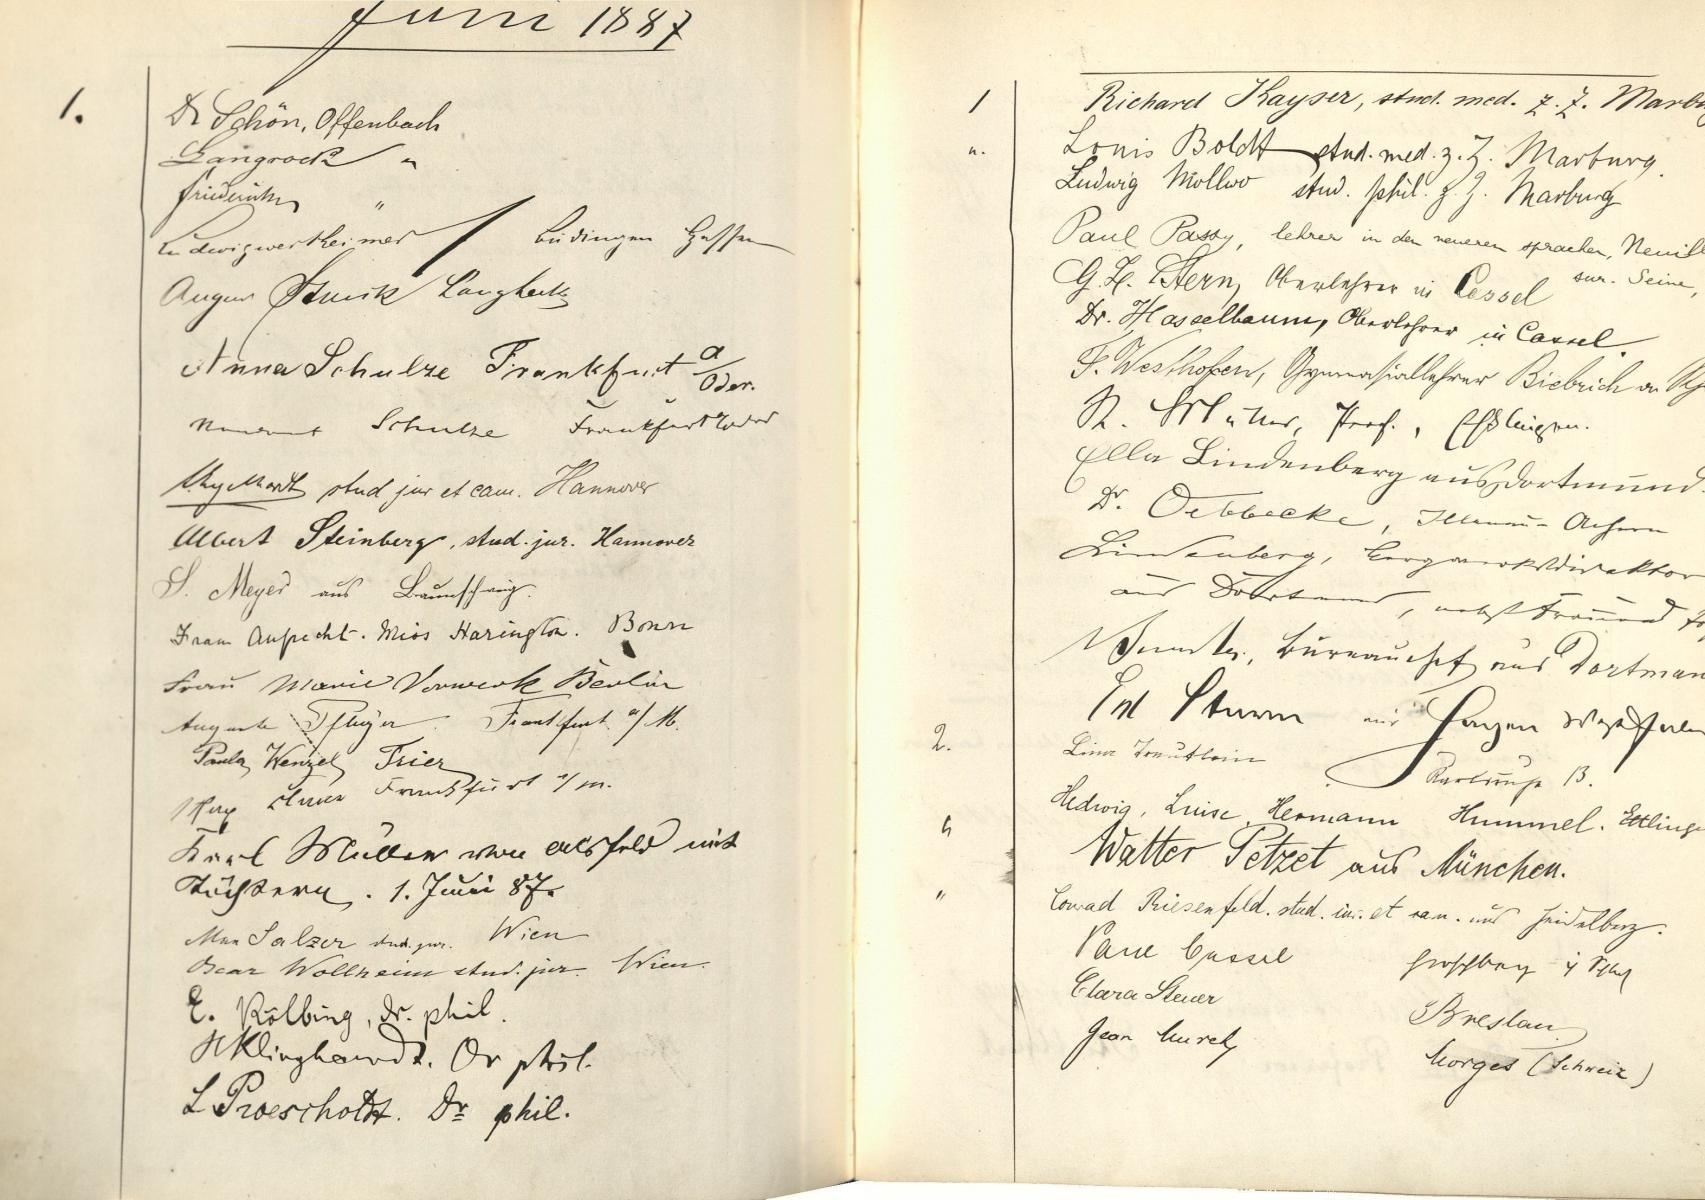 Juni 1887
1.
Dr Schön, Offenbach
Langrock "
Friederichs "
Ludwig Wertheimer Büdingen Hessen
August Langheck
Anna Schulze Frankfurt a/Oder.
Schulze Frankfurt a/Oder
stud jur et cam. Hannover
Albert Steinberg, stud. jur. Hannover
S. Meyer aus Braunschweig.
Frau Aufrecht. Miss Harington. Bonn
Frau Marie Vorwerk Berlin
Auguste Pflüger Frankfurt a/M.
Paula Wenzel Trier
Frankfurt a/m.
Karl Müller von Alsfeld mit
Töchtern. 1. Juni 87.
Max Salzer stud. jur. Wien
Oscar Wollheim stud. jur. Wien.
E. Kölbing, dr. phil.
H Klinghardt. Dr phil.
L Proescholdt. Dr phil.
1 Richard Kayser, stud. med. z. Z. Marbu
u. Louis Boldt stud. med. z. Z. Marburg.
Ludwig Mollwo stud. phil. z. Z. Marburg
Paul Passy, lehrer in den neueren sprachen, Neuill
sur. Seine,
G. H. Stern, Oberlehrer in Cassel
Dr. Hasselbaum, Oberlehrer in Cassel.
F. Westhofen, Gymnasiallehrer Biebrich a
Prof., Eßlingen.
Ella Lindenberg aus Dortmund.
Dr. Oebbecke, Illenau - Achern
Lindenberg, Bergwerksdirektor
aus Dortmund, nebst Frau und
Bureauchef aus Dortmun
Sturm aus Hagen Westfalen
2. Lina Trautlein Karlsruhe B.
Hedwig, Luise, Hermann Hummel. Ettlinge
" Walter Petzet aus München.
" Conrad Riesenfeld. stud. iur. et cam. aus Heidelberg.
Paul Cassel
Clara Steuer Breslau
Jean Morges (Schweiz)